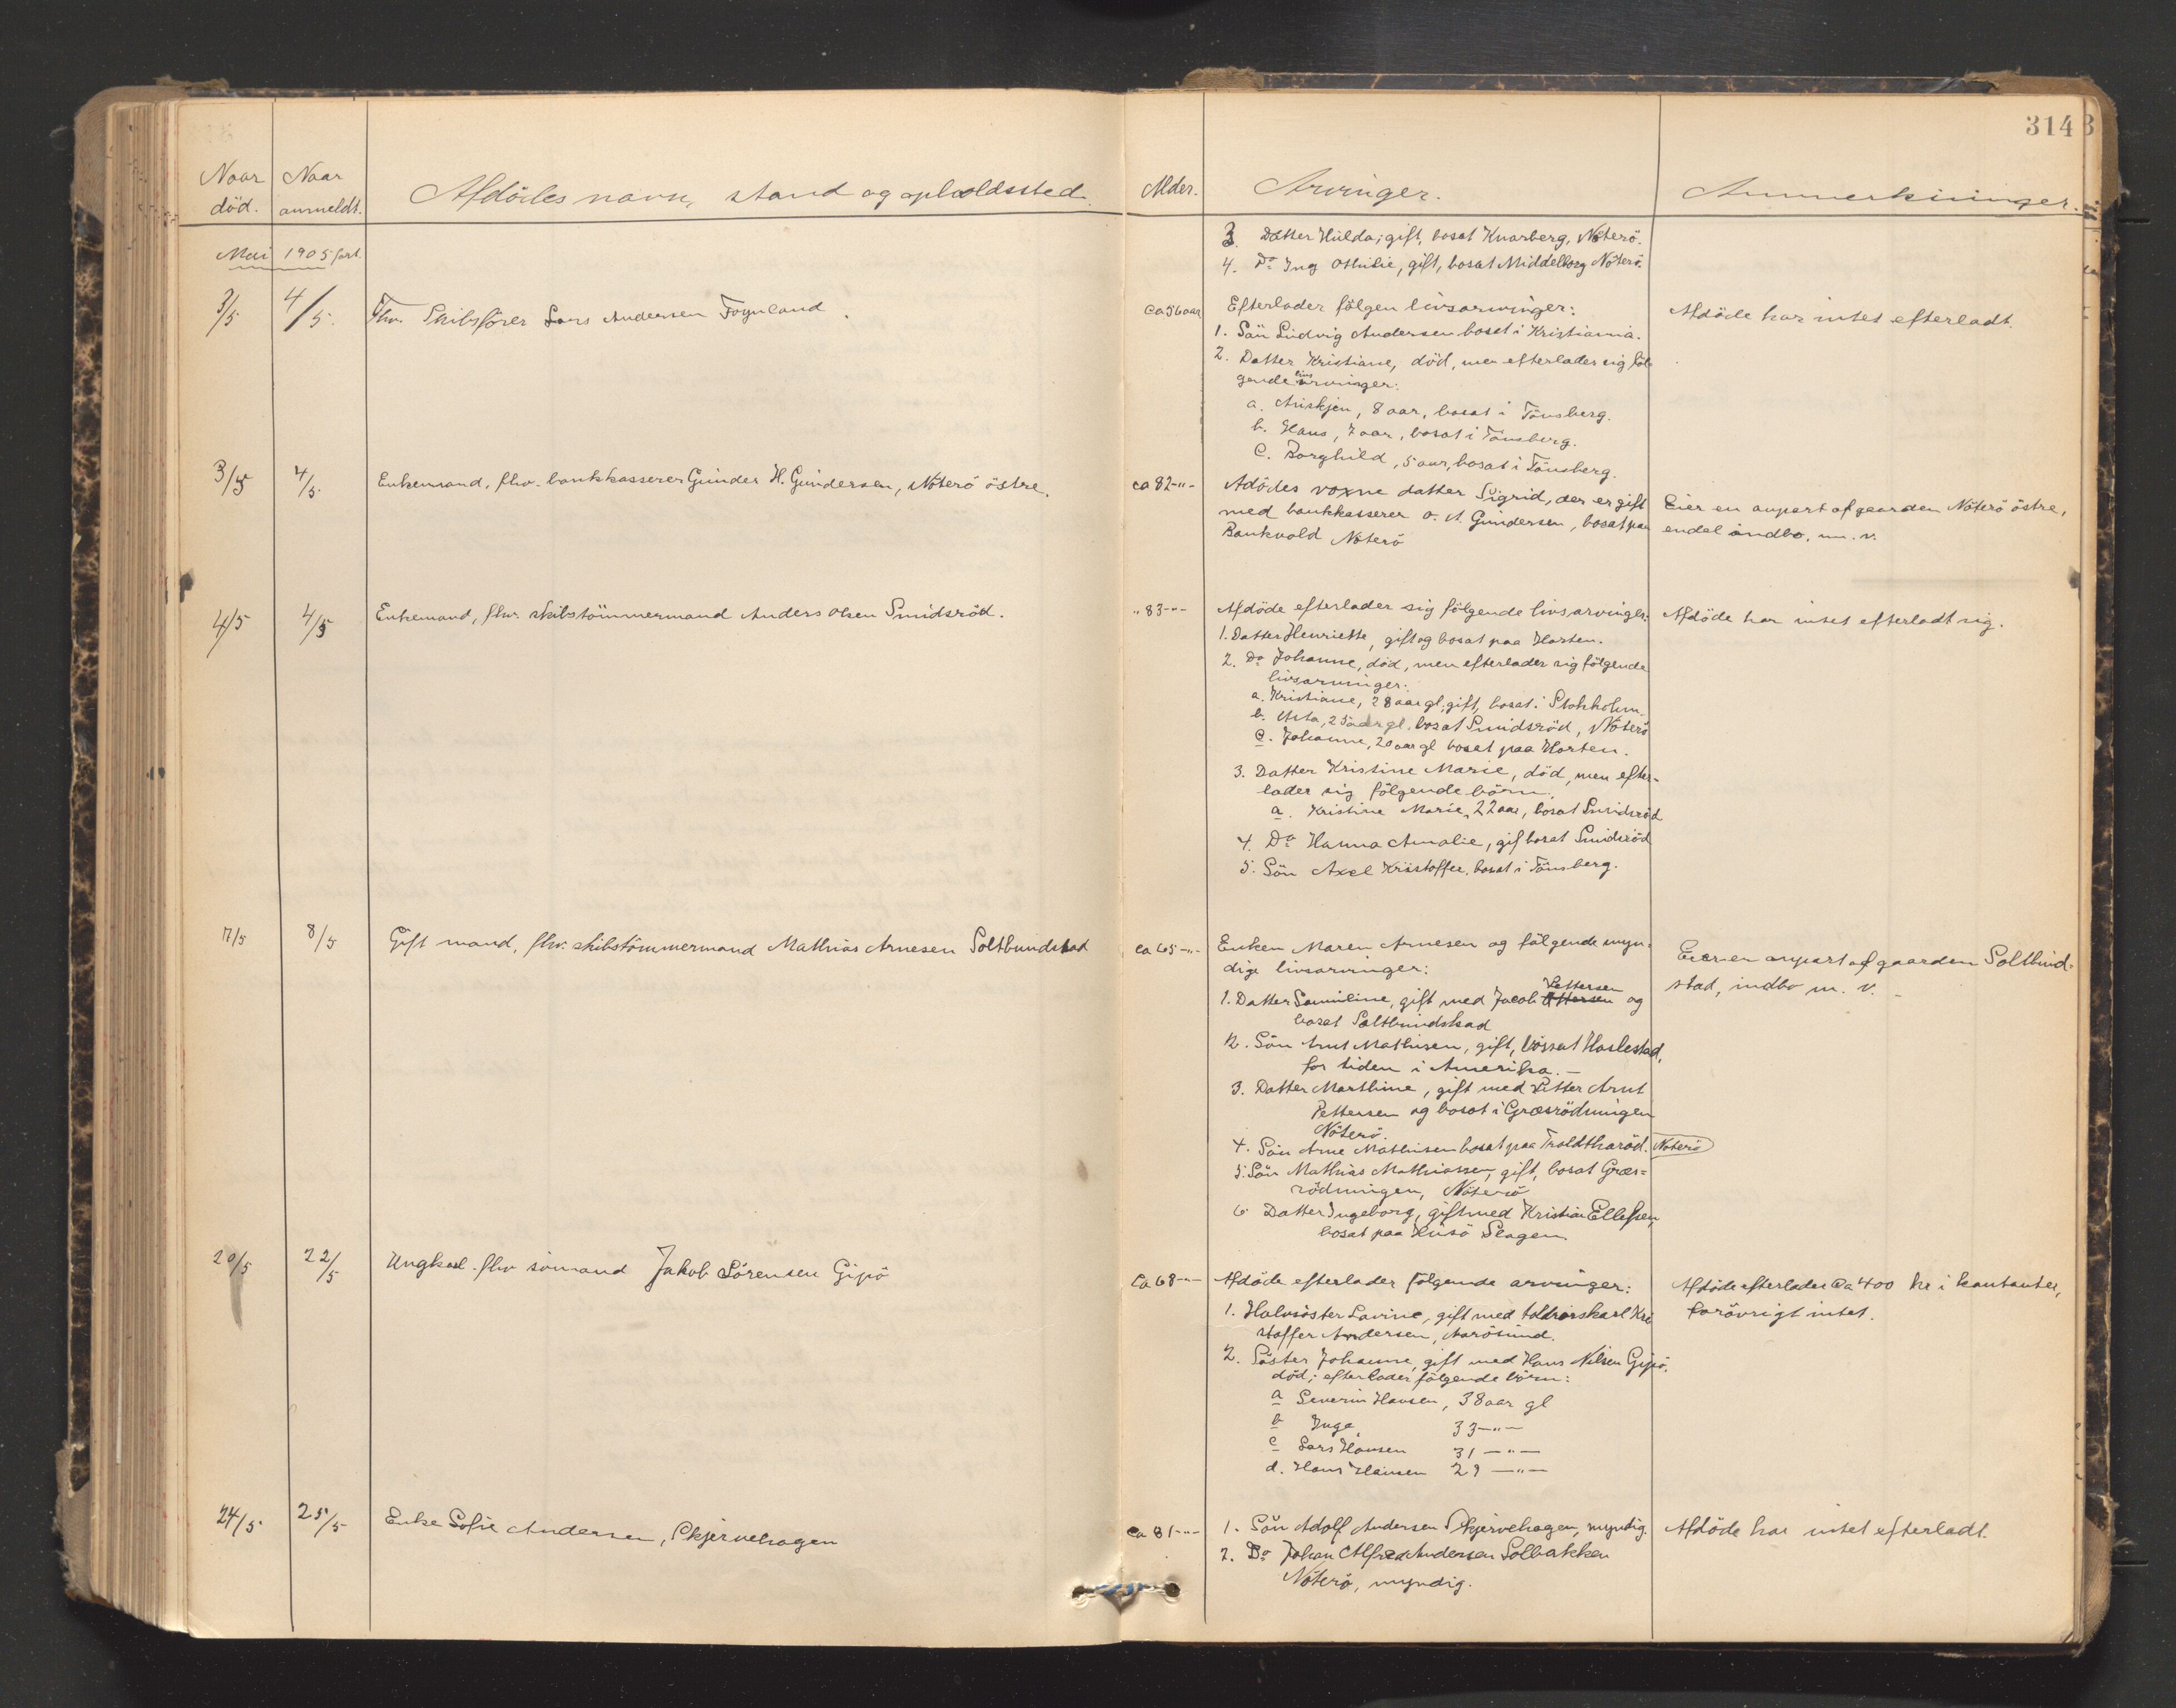 314
Naar död.
Naar anmeldt.
Afdödes navn, stand og opholdssted.
Alder.
Arvinger.
Anmerkninger.
Mai 1905 fort.
3. Datter Hulda, gift, bosat Knarberg, Nöterö.
4. Do Ing Othilie, gift, bosat Middelborg Nöterö.
3/5 4/5. Fhv. Skibsförer Lars Andersen Foynland.
ca 56 aar
Efterlader fölgen livsarvinger:
1. Sön Ludvig Andersen bosat i Kristiania.
2. Datter Kristiane, död, men efterlader sig föl-
gende livsarvinger:
a. Anskjen, 8 aar, bosat i Tönsberg.
b. Hans, 7 aar, bosat i Tönsberg.
c. Borghild, 5 aar, bosat i Tönsberg.
Afdöde har intet efterladt.
3/5 4/5 Enkemand, fhv. bankkasserer Gunder H. Gundersen, Nöterö östre.
ca 82-"-
Adödes voxne datter Sigrid, der er gift
med bankkasserer O. A. Gundersen, bosat paa
Bankvold Nöterö
Eier en anpart af gaarden Nöterö östre,
endel indbo, m. v.
4/5 4/5 Enkemand, fhv. skibstömmermand Anders Olsen Smidsröd.
" 83-"-
Afdöde efterlader sig fölgende livsarvinger:
1. Datter Henriette, gift og bosat paa Horten.
2. Do Johanne, död, men efterlader sig fölgende
livsarvinger:
a. Kristiane, 28 aar gl, gift, bosat i Stokholm.
b. Asta, 25 aar gl. bosat Smidsröd, Nöterö
c. Johanne, 20 aar gl bosat paa Horten.
3. Datter Kristine Marie, död, men efter-
lader sig fölgende börn.
a. Kristine Marie, 22 aar, bosat Smidsröd
4. Do Hanna Amalie, gif bosat Smidsröd
5. Sön Axel Kristoffer, bosat i Tönsberg.
Afdöde har intet efterladt sig.
7/5 8/5 Gift mand, fhv. skibstömmermand Mathias Arnesen Soltbundstad
ca 65-"-
Enken Maren Arnesen og fölgende myn-
dige livsarvinger:
1. Datter Samiline, gift med Jacob Pettersen og
bosat Soltbundstad
2. Sön Arnt Mathisen, gift, bosat Haslestad,
for tiden i Amerika. -
3. Datter Marthine, gift med Petter Arnt
Pettersen og bosat i Græsrödningen
Nöterö.
4. Sön Arne Mathisen bosat paa Troldtharöd. Nöterö
5. Sön Mathias Mathiassen, gift, bosat Græs-
rödningen, Nöterö
6 Datter Ingeborg, gift med Kristian Ellefsen
bosat paa Husö Slagen
Eier en anpart af gaarden Soltbund-
stad, indbo m. v. -
20/5 22/5 Ungkarl fhv sömand Jakob Sörensen Gipö
ca 68-"-
Afdöde efterlader fölgende arvinger:
1. Halvsöster Lavine, gift med toldrorskarl Kri
stoffer Andersen, Aarösund.
2. Söster Johanne, gift med Hans Nilsen Gipö,
död; efterlader fölgende börn:
a Severin Hansen, 38 aar gl
b Inga 33-"-
c Lars Hansen 31-"-
d. Hans Hansen 29-"-
Afdöde efterlader ca 400 kr i kontanter,
forövrigt intet.
24/5 25/5 Enke Sofie Andersen, Skjervehagen
ca 81-"-
1. Sön Adolf Andersen Skjervehagen, myndig.
2. Do Johan Alfred Andersen Solbakken
Nöterö, myndig.
Afdöde har intet efterladt.